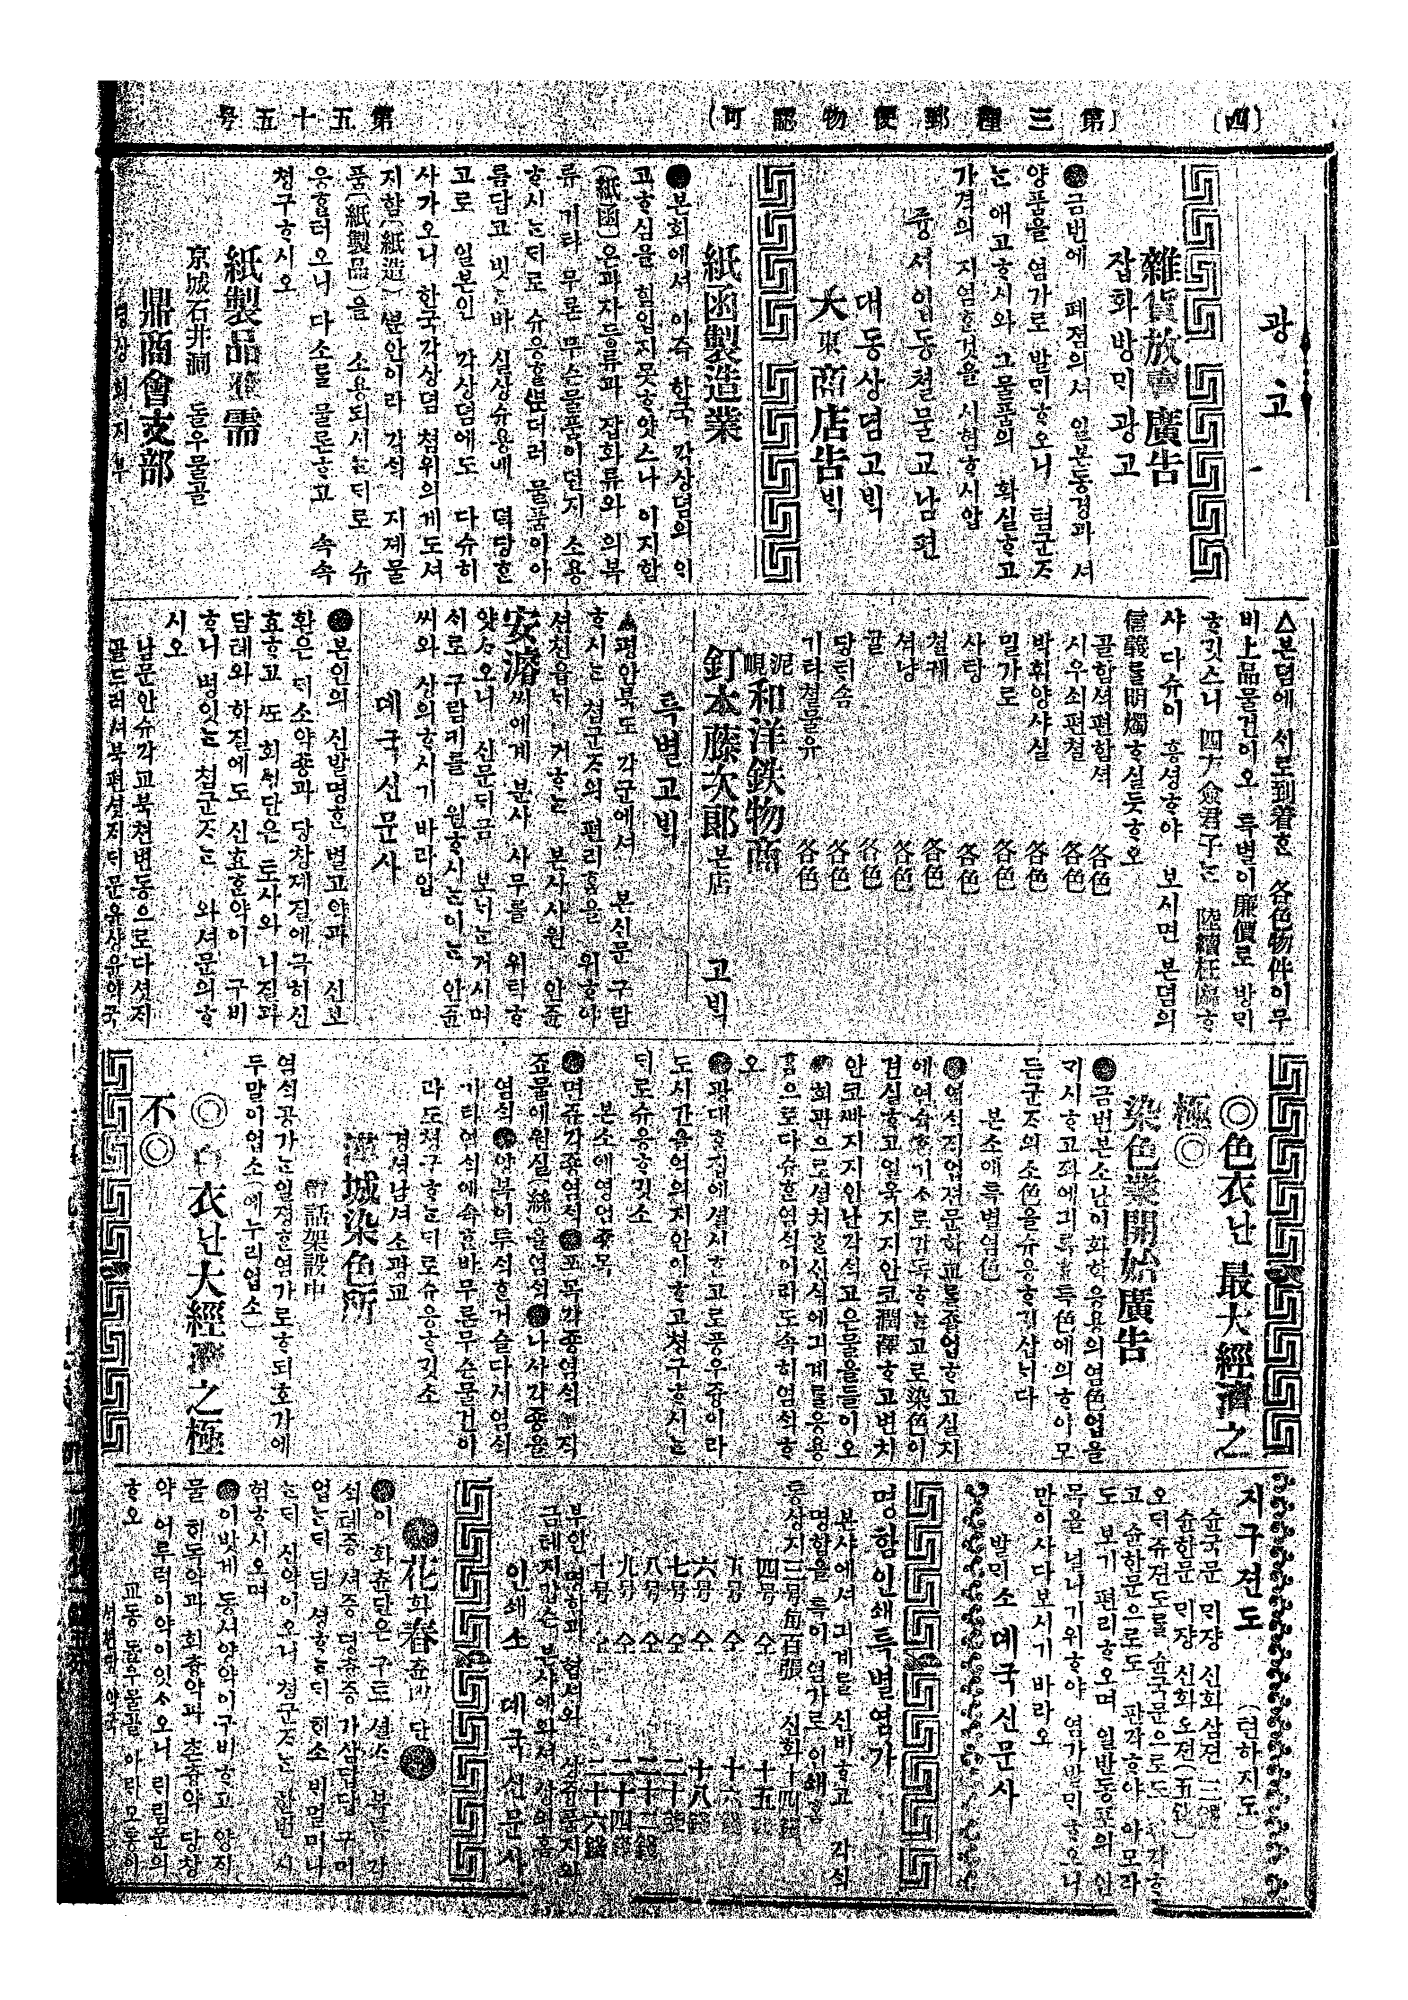 (四) (第三種郵便物認可) 第五十五号
광고
雜貨放賣廣告
잡화방ᄆᆡ광고
●금번에 폐점의셔 일본동경과 셔
양품을 염가로 발ᄆᆡᄒᆞ오니 텸군ᄌᆞ
ᄂᆞᆫ 애고ᄒᆞ시와 그물품의 화실ᄒᆞ고
가격의 지염ᄒᆞᆫ것을 시험ᄒᆞ시압
즁셔입동철물고남편
대동상뎜고ᄇᆡᆨ
大東商店告ᄇᆡᆨ
紙函製造業
●본회에셔 아즉 한국 각상뎜의 의
고ᄒᆞ심을 힘입지못ᄒᆞ얏스나 이지함
(紙函)은과자등류과 잡화류와 의복
류 기타 무론 무슨물품이던지 소용
ᄒᆞ시ᄂᆞᆫᄃᆡ로 슈응ᄒᆞᆯᄲᅮᆫ더러 물품이아
름답고 빗ᄂᆞᆫ바 실상슈용배 뎍당ᄒᆞᆫ
고로 일본인 각상뎜에도 다슈히
사가오니 한국각상뎜 쳠위의게도셔
지함(紙造)ᄲᅮᆫ안이라 각ᄉᆡᆨ 지제물
품(紙製品)을 소용되시ᄂᆞᆫᄃᆡ로 슈
응ᄒᆞᆯ터오니 다소를 물론ᄒᆞ고 속속
쳥구ᄒᆞ시오
紙製品 需
京城石井洞 돌우물골
鼎商會支部
뎡상회지부
△본뎜에 ᄉᆡ로到着ᄒᆞᆫ 各色物件이무
비上品물건이오 특별이廉價로 방ᄆᆡ
ᄒᆞ깃스니 四方僉君子ᄂᆞᆫ 陸續枉臨ᄒᆞ
샤 다슈이 흥셩ᄒᆞ야 보시면 본뎜의
信義를明燭ᄒᆞ실듯ᄒᆞ오
골합셕편함셕 各色
시우쇠편철 各色
박휘양사실 各色
밀가로 各色
사탕 各色
철궤 各色
셕냥 各色
골 各色
당ᄐᆡ솜 各色
기타철물유 各色
泥峴 和洋鉄物商
釘本藤次郎本店 고ᄇᆡᆨ
특별고ᄇᆡᆨ
▲평안북도 각군에셔 본신문 구람
ᄒᆞ시ᄂᆞᆫ 쳠군ᄌᆞ의 편리ᄒᆞᆷ을 위ᄒᆞ야
션쳔읍ᄂᆡ 거ᄒᆞᄂᆞᆫ 본사사원 안쥰
安濬씨에게 분사 사무를 위탁ᄒᆞ
얏ᄉᆞ오니 신문ᄃᆡ금 보ᄂᆡᄂᆞᆫ거시며
ᄉᆡ로 구람ᄒᆞ기를 원ᄒᆞ시ᄂᆞᆫ이ᄂᆞᆫ 안쥰
씨와 상의ᄒᆞ시기 바라압
뎨국신문사
●본인의 신발명ᄒᆞᆫ 별고약과 신보
환은 ᄃᆡ소약죵과 당창제질에극히신
효ᄒᆞ고 ᄯᅩ 회ᄉᆡᆼ단은 토사와 니질과
담톄와 하질에도 신효ᄒᆞᆫ약이 구비
ᄒᆞ니 병잇ᄂᆞᆫ 쳠군ᄌᆞᄂᆞᆫ 와셔문의ᄒᆞ
시오
남문안슈각교북쳔변동으로다셧ᄌᆡ
골드러셔북편셜ᄌᆡᄃᆡ문유상유약국
◎色衣난 最大經濟之極◎
染色業開始廣告
●금번본소난이화학응용의염色업을
ᄀᆡ시ᄒᆞ고좌에긔록ᄒᆞᆫ특色에의ᄒᆞ야모
든군ᄌᆞ의소色을슈응ᄒᆞ깃삽ᄂᆡ다
본소애특별염色
●염ᄉᆡᆨ직업젼문학교를졸업ᄒᆞ고실지
에연슉ᄒᆞᆫ기ᄉᆞ로감독ᄒᆞᄂᆞᆫ고로染色이
겁실ᄒᆞ고일욱지지안코潤澤ᄒᆞ고변치
안코ᄲᅡ지지안난각ᄉᆡᆨ고은물을들이오
●회관으로셜치ᄒᆞᆫ신식에긔계를응용
ᄒᆞᆷ으로다슈ᄒᆞᆫ염ᄉᆡᆨ이라도속히염ᄉᆡᆨᄒᆞ
오
●광대ᄒᆞᆫ집에셜시ᄒᆞᆫ고로풍우즁이라
도시간을억의지안이ᄒᆞ고쳥구ᄒᆞ시ᄂᆞᆫ
ᄃᆡ로슈응ᄒᆞ깃소
본소에영업죵목
●면쥬각죵염ᄉᆡᆨ●포목각죵염ᄉᆡᆨ 직
죠물에원실(絲)을염ᄉᆡᆨ●나사각죵을
염ᄉᆡᆨ●암복이투ᄉᆡᆨᄒᆞᆫ거슬다시염ᄉᆡᆨ
기타염ᄉᆡᆨ에속ᄒᆞᆫ바무론무슨물건이
라도쳥구ᄒᆞᄂᆞᆫᄃᆡ로슈응ᄒᆞ깃소
경셩남셔소광교
城染色所
電話架設中
염ᄉᆡᆨ공가ᄂᆞᆫ일졍ᄒᆞᆫ염가로ᄒᆞ되호가에
두말이업소(에누리업소)
◎ 衣난大經濟之極
不◎
지구젼도 (텬하지도)
슌국문 ᄆᆡ쟝 신화삼젼
슌한문 ᄆᆡ쟝 신화오젼(五錢)
오대쥬젼도를 슌국문으로도 각ᄒᆞ
고 슌한문으로도 판각ᄒᆞ야 아모라
도 보기 편리ᄒᆞ오며 일반동포의 안
목을 널니기위ᄒᆞ야 염가발ᄆᆡᄒᆞ오니
만이사다보시기 바라오
발ᄆᆡ소 뎨국신문사
명함인쇄특별염가
본샤에셔 긔계를 신비ᄒᆞ고 각ᄉᆡᆨ
명함을 특이 염가로 인쇄ᄒᆞᆷ
통상지三号每百張 신화十四錢
四号 仝 十五錢
五号 仝 十六錢
六号 仝 十八錢
七号 仝 二十錢
八号 仝 二十二錢
九号 仝 二十四錢
十号 仝 二十六錢
부인명함과 협셔와 상픔픔지와
금테지갑슨 본사에와셔 상의ᄒᆞᆷ
인쇄소 뎨국신문사
●花화春츈단●
●이 화츈단은 구토 셜ᄉᆞ 복통 각
ᄉᆡᆨ톄즁셔즁 뎡츙증 가삼답답 구미
업ᄂᆞᆫᄃᆡ 담 셩ᄒᆞᄂᆞᆫᄃᆡ ᄒᆡ소 비멀미나
ᄂᆞᆫᄃᆡ 신약이오니 쳠군ᄌᆞᄂᆞᆫ 한번 시
험ᄒᆞ시오며
●이밧게 동셔양약이구비ᄒᆞ고 양ᄌᆡ
물 ᄒᆡ독약과 회츙약과 촌츙약 당창
약 어루럭이약이잇ᄉᆞ오니 ᄅᆡ림문의
ᄒᆞ오 교동 돌우물골 아ᄅᆡ모퉁이